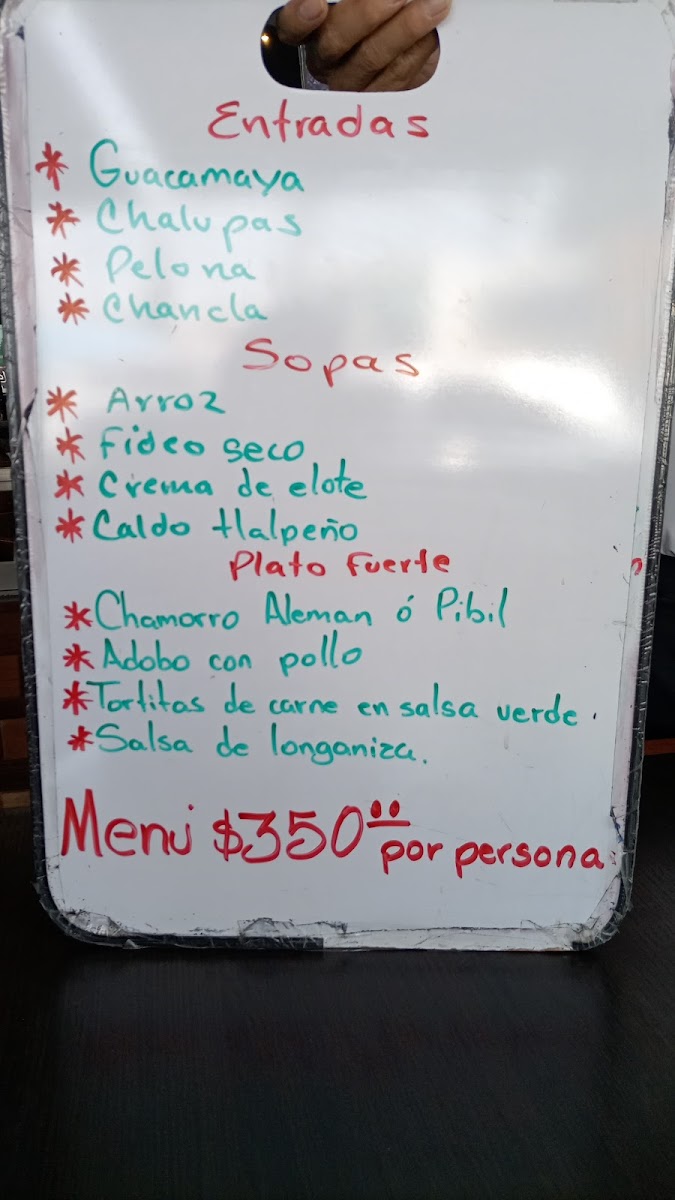 Entradas
* Guacamaya
* Chalupas
* Pelona
* Chancla
Sopas
* Arroz
* Fideo seco
* Crema de elote
* Caldo tlalpeño
Plato Fuerte
* Chamorro Aleman ó Pibil
* Adobo con pollo
* Tortitas de carne en salsa verde.
* Salsa de longaniza.
Menú $350.00 por persona